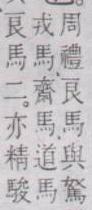 周禮、良馬與駑
戎馬齋馬道馬
良馬二。亦精駿